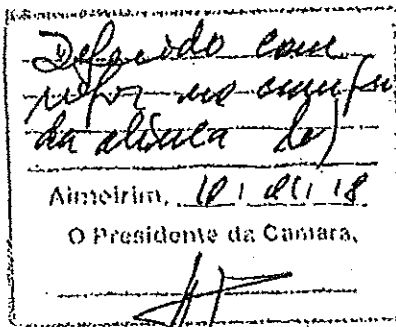 Deferido com
da alinea b)
Almeirim, 10 / 01 / 18
O Presidente da Camara,